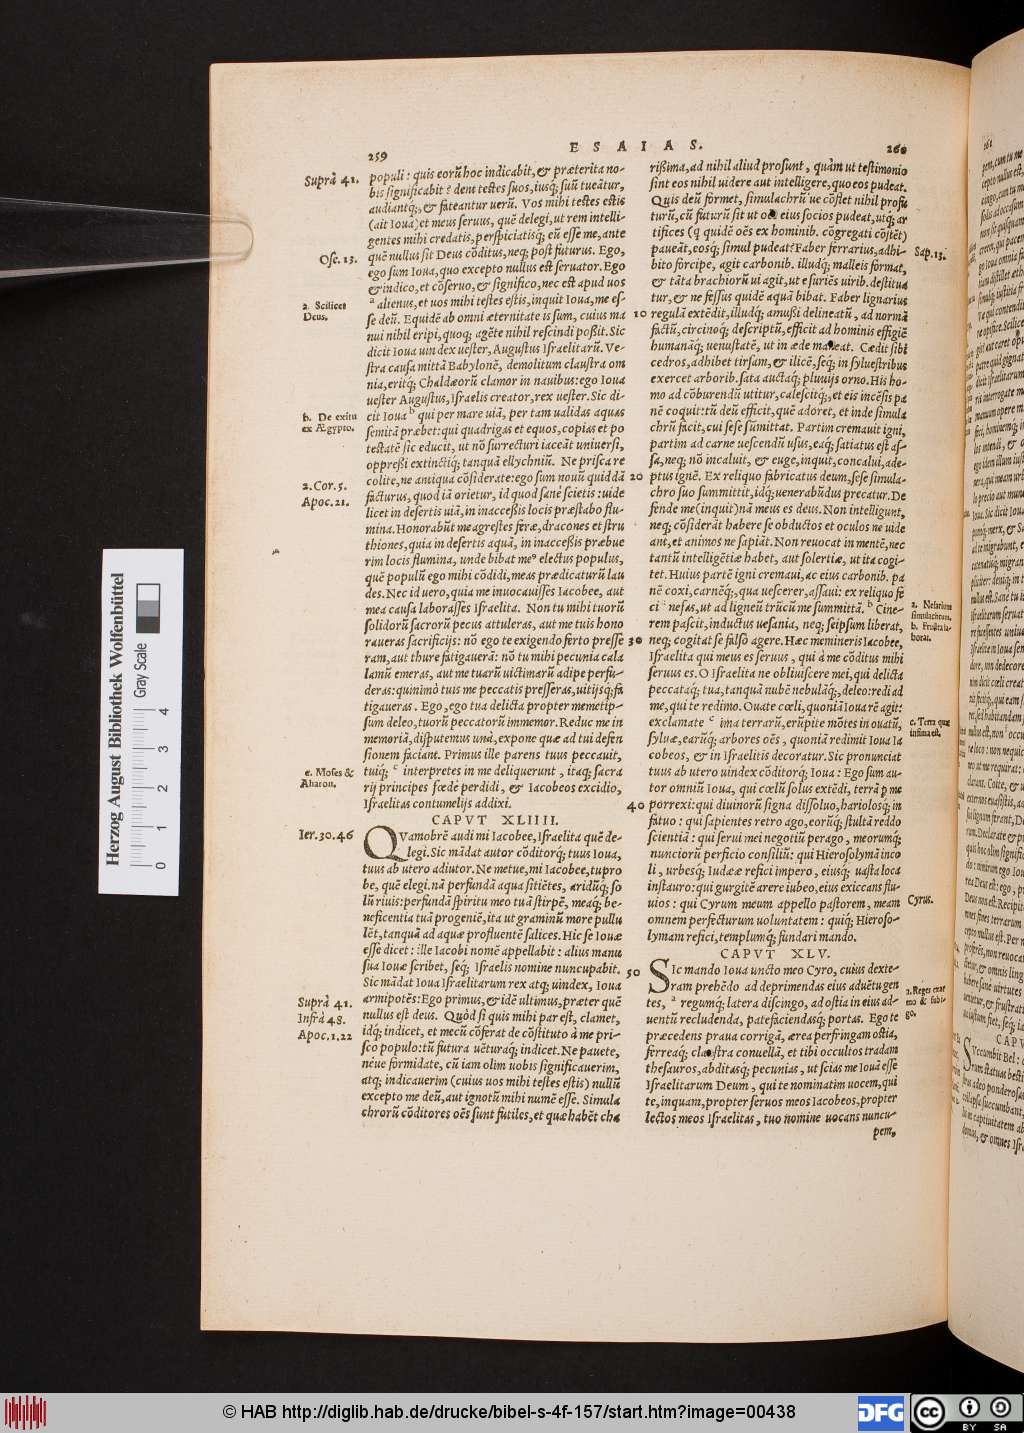 E S A I A S.
259
260
Suprà 41.
Ose. 13.
a. Scilicet
Deus.
b. De exitu
ex Ægypto.
2. Cor. 5.
Apoc. 21.
e. Moses &
Aharon.
Ier. 30. 46
Suprà 41.
Infrà 48.
Apoc. 1. 22
populi: quis eorũ hoc indicabit, & præterita no-
bis significabit? dent testes suos, iusq; suũ tueãtur,
audiantq;, & fateantur uerũ. Vos mihi testes estis
(ait Ioua) et meus seruus, quẽ delegi, ut rem intelli-
gentes mihi credatis, perspiciatisq; eũ esse me, ante
quẽ nullus sit Deus cõditus, neq; post futurus. Ego,
ego sum Ioua, quo excepto nullus est seruator. Ego
& indico, et cõseruo, & significo, nec est apud uos
a alienus, et uos mihi testes estis, inquit Ioua, me es-
se deũ. Equidẽ ab omni æternitate is sum, cuius ma
nui nihil eripi, quoq; agẽte nihil rescindi poßit. Sic
dicit Ioua uindex uester, Augustus Israelitarũ. Ve-
stra causa mittã Babylonẽ, demolitum claustra om
nia, eritq; Chaldæorũ clamor in nauibus: ego Ioua
uester Augustus, Israelis creator, rex uester. Sic di-
cit Ioua b qui per mare uiã, per tam ualidas aquas
semitã præbet: qui quadrigas et equos, copias et po
testatẽ sic educit, ut nõ surrecturi iaceãt uniuersi,
oppreßi extinctiq; tanquã ellychniũ. Ne prisca re
colite, ne antiqua cõsiderate: ego sum nouũ quiddã
facturus, quod iã orietur, id quod sanè scietis: uide
licet in desertis uiã, in inacceßis locis præstabo flu-
mina. Honorabũt me agrestes feræ, dracones et stru
thiones, quia in desertis aquã, in inacceßis præbue
rim locis flumina, unde bibat me⁹ electus populus,
quẽ populũ ego mihi cõdidi, meas prædicaturũ lau
des. Nec id uero, quia me inuocauisses Iacobee, aut
mea causa laborasses Israelita. Non tu mihi tuorũ
solidorũ sacrorũ pecus attuleras, aut me tuis hono
raueras sacrificijs: nõ ego te exigendo ferto presse
ram, aut thure fatigauerã: nõ tu mihi pecunia cala
lamũ emeras, aut me tuarũ uictimarũ adipe perfu-
deras: quinimò tuis me peccatis presseras, uitijsq; fa
tigaueras. Ego, ego tua delicta propter memetip-
sum deleo, tuorũ peccatorũ immemor. Reduc me in
memoriã, disputemus unà, expone quæ ad tui defen
sionem faciant. Primus ille parens tuus peccauit,
tuiq; c interpretes in me deliquerunt, itaq; sacra
rij principes fœdè perdidi, & Iacobeos excidio,
Israelitas contumelijs addixi.
CAPVT XLIIII.
Quamobrẽ audi mi Iacobee, Israelita quẽ de-
legi. Sic mãdat autor cõditorq; tuus Ioua,
tuus ab utero adiutor. Ne metue, mi Iacobee, tu pro
be, quẽ elegi. nã perfundã aqua sitiẽtes, aridũq; so
lũ riuis: perfundã spiritu meo tuã stirpẽ, meaq; be-
neficentia tuã progeniẽ, ita ut graminũ more pullu
lẽt, tanquã ad aquæ profluentẽ salices. Hic se Iouæ
esse dicet: ille Iacobi nomẽ appellabit: alius manu
sua Iouæ scribet, seq; Israelis nomine nuncupabit.
Sic mãdat Ioua Israelitarum rex atq; uindex, Ioua
armipotẽs: Ego primus, & idẽ ultimus, præter quẽ
nullus est deus. Quòd si quis mihi par est, clamet,
idq; indicet, et mecũ cõferat de cõstituto à me pri-
sco populo: tũ futura uẽturaq; indicet. Ne pauete,
néue formidate, cũ iam olim uobis significauerim,
atq; indicauerim (cuius uos mihi testes estis) nullũ
excepto me deũ, aut ignotũ mihi numẽ esse. Simula
chrorũ cõditores oẽs sunt futiles, et quæ habẽt cha
10
20
30
40
50
rißima, ad nihil aliud prosunt, quàm ut testimonio
sint eos nihil uidere aut intelligere, quo eos pudeat.
Quis deũ formet, simulachrũ'ue cõflet nihil profu
turũ, cũ futurũ sit ut oẽs eius socios pudeat, utq; ar
tifices (q quidẽ oẽs ex hominib. cõgregati cõstẽt)
paueãt, eosq; simul pudeat? Faber ferrarius, adhi-
bito forcipe, agit carbonib. illudq; malleis format,
& tãta brachiorũ ui agit, ut esuriẽs uirib. destitua
tur, & ne fessus quidẽ aquã bibat. Faber lignarius
regulã extẽdit, illudq; amußi delineatũ, ad normã
factũ, circinoq; descriptũ, efficit ad hominis effigiẽ
humanãq; uenustatẽ, ut in æde maneat. Cædit sibi
cedros, adhibet tirsam, & ilicẽ, seq; in syluestribus
exercet arborib. sata auctaq; pluuijs orno. His ho-
mo ad cõburendũ utitur, calescitq;, et eis incẽsis pa
nẽ coquit: tũ deũ efficit, quẽ adoret, et inde simula
chrũ facit, cui sese sumittat. Partim cremauit igni,
partim ad carne uescendũ usus, eaq; satiatus est as-
sa, neq; nõ incaluit, & euge, inquit, concalui, ade-
ptus ignẽ. Ex reliquo fabricatus deum, sese simula-
chro suo summittit, idq; uenerabũdus precatur. De
fende me (inquit) nã meus es deus. Non intelligunt,
neq; cõsiderãt habere se obductos et oculos ne uide
ant, et animos ne sapiãt. Non reuocat in mentẽ, nec
tantũ intelligẽtiæ habet, aut solertiæ, ut ita cogi-
tet. Huius partẽ igni cremaui, ac eius carbonib. pa
nẽ coxi, carnẽq;, qua uescerer, assaui: ex reliquo fe
ci a nefas, ut ad ligneũ trũcũ me summittã. b Cine-
rem pascit, inductus uesania, neq; seipsum liberat,
neq; cogitat se falsò agere. Hæc memineris Iacobee,
Israelita qui meus es seruus, qui à me cõditus mihi
seruus es. O Israelita ne obliuiscere mei, qui delicta
peccataq; tua, tanquã nubẽ nebulãq;, deleo: redi ad
me, qui te redimo. Ouate cœli, quoniã Ioua rẽ agit:
exclamate c ima terrarũ, erũpite mõtes in ouatũ,
syluæ, earũq; arbores oẽs, quoniã redimit Ioua Ia
cobeos, & in Israelitis decoratur. Sic pronunciat
tuus ab utero uindex cõditorq; Ioua: Ego sum au-
tor omniũ Ioua, qui cœlũ solus extẽdi, terrã p me
porrexi: qui diuinorũ signa dissoluo, hariolosq; in
fatuo: qui sapientes retro ago, eorũq; stultã reddo
scientiã: qui serui mei negotiũ perago, meorumq;
nunciorũ perficio consiliũ: qui Hierosolymã inco
li, urbesq; Iudææ refici impero, eiusq; uasta loca
instauro: qui gurgitẽ arere iubeo, eius exiccans flu-
uios: qui Cyrum meum appello pastorem, meam
omnem perfecturum uoluntatem: quiq; Hieroso-
lymam refici, templumq; fundari mando.
CAPVT XLV.
Sic mando Ioua uncto meo Cyro, cuius dexte-
ram prehẽdo ad deprimendas eius aduẽtu gen
tes, a regumq; latera discingo, ad ostia in eius ad-
uentũ recludenda, patefaciendasq; portas. Ego te
præcedens praua corrigã, ærea perfringam ostia,
ferreaq; claustra conuellã, et tibi occultos tradam
thesauros, abditasq; pecunias, ut scias me Iouã esse
Israelitarum Deum, qui te nominatim uocem, qui
te, inquam, propter seruos meos Iacobeos, propter
lectos meos Israelitas, tuo nomine uocans nuncu-
pem,
Sap. 13.
a. Nefarium
simulachrum.
b. Frustra la-
borat.
c. Terra quæ
infima est.
Cyrus.
a. Reges exar
mo & subi-
go.
Herzog August Bibliothek Wolfenbüttel
Gray Scale
0 1 2 3 4
© HAB http://diglib.hab.de/drucke/bibel-s-4f-157/start.htm?image=00438
DFG
cc BY SA